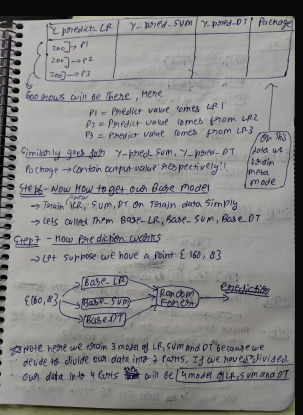 Y_predict_LR Y_pred_SVM Y_pred_DT Package
200] → P1
200] → P2
200] → P3
600 rows will be There, Here
P1 = Predict value comes LR1
P2 = Predict value comes from LR2
P3 = Predict value comes from LR3
On This data we train meta mode
Similarly goes for Y_pred_SVM, Y_pred_DT
Package → Contain output value respectively!!
Step6 - Now How to get our Base model
→ Train new LR, SVM, DT on Train data Simply
→ Lets called Them Base_LR, Base_SVM, Base_DT
Step7 - How Prediction works
→ Let suppose we have a point {160, 8}
Base_LR
{160, 8} Base_SVM Random Forest Prediction
Base_DT
Note here we train 3 model of LR, SVM and DT because we
decide to divide our data into 3 Parts, If we have divided
our data into 4 Parts will be 4 model of LR, SVM and DT